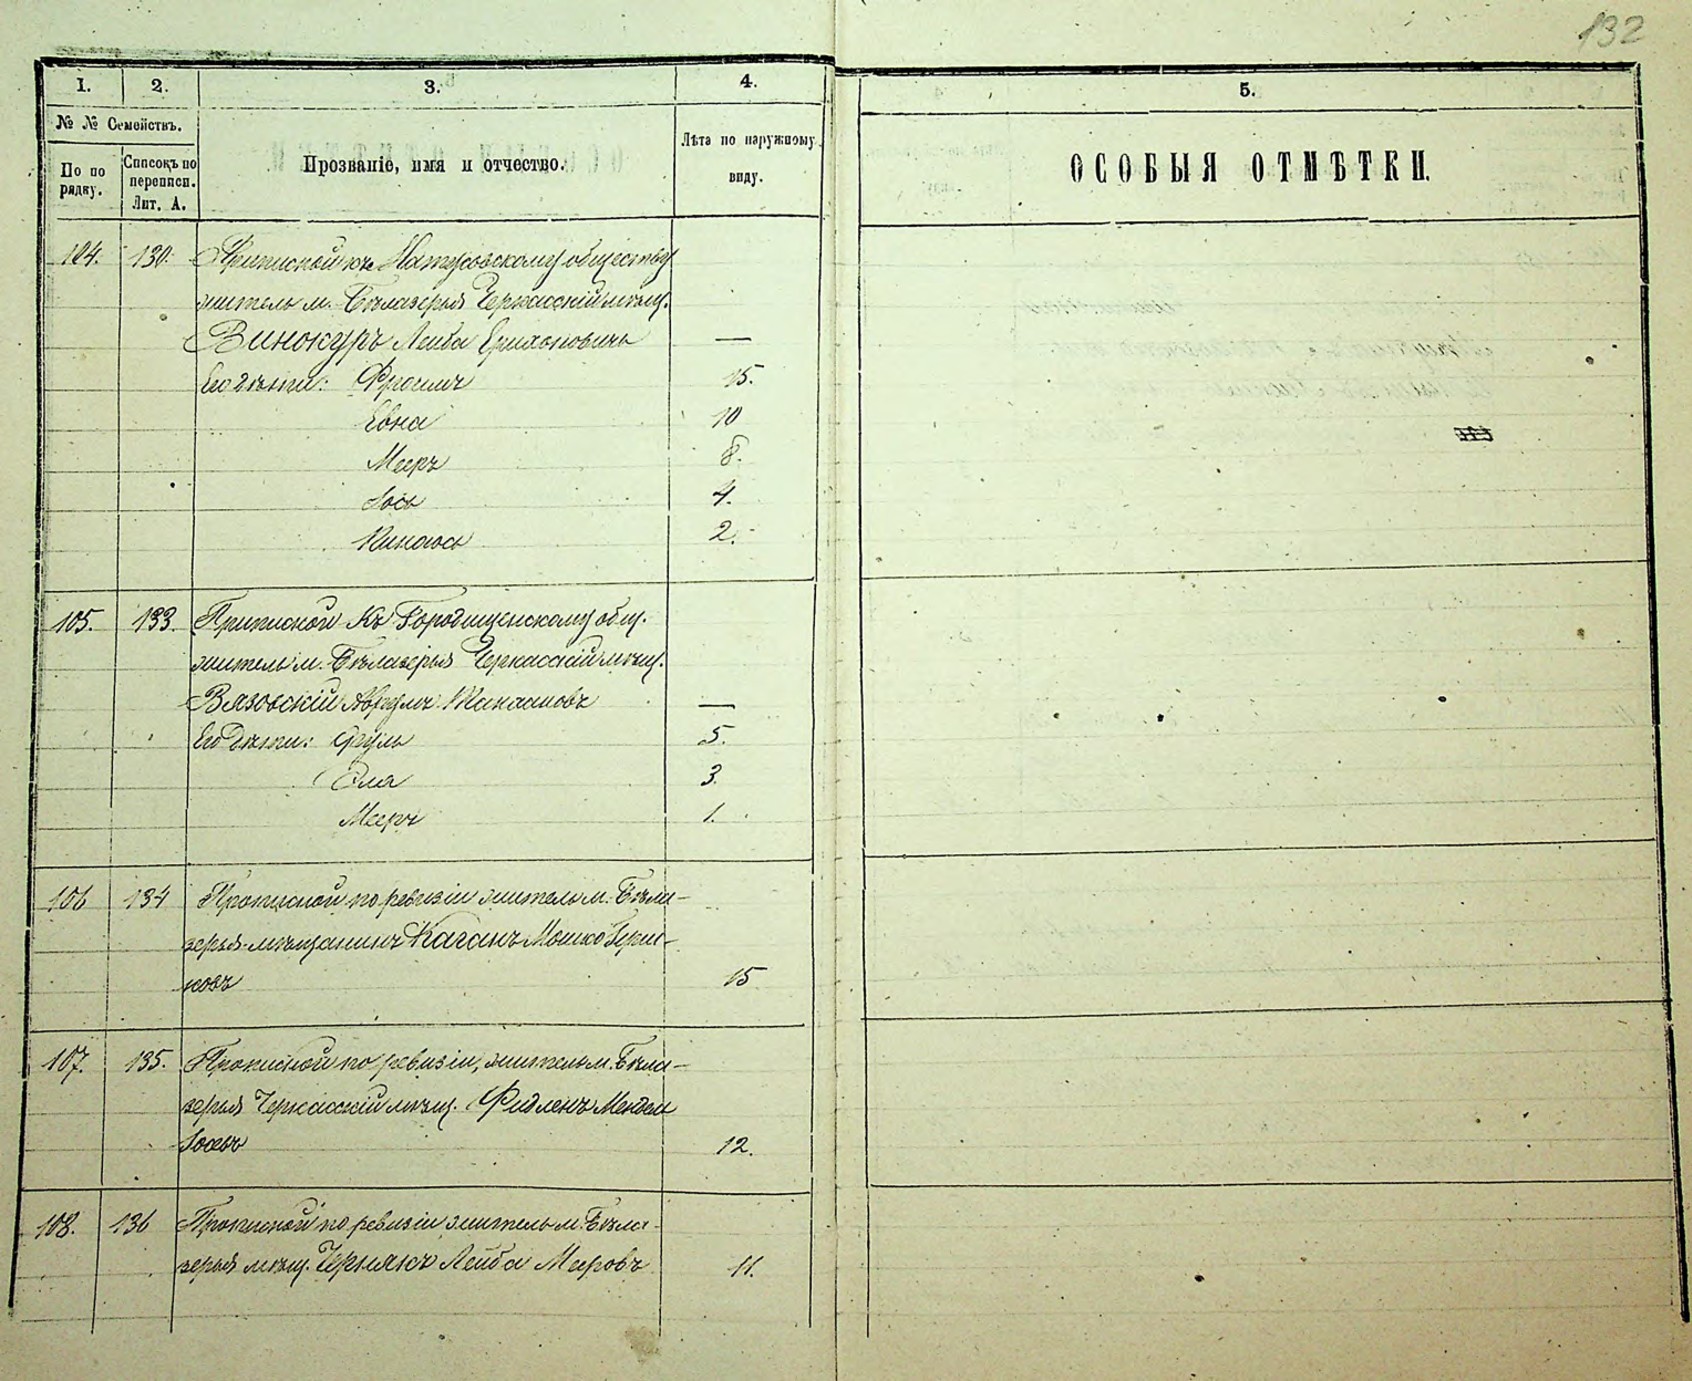 132
1. 2. 3. 4. 5.
№ № Семействъ.
По по рядку.
Списокъ по переписи. Лит. А.
Прозваніе, имя и отчество.
Лѣта по наружному виду.
ОСОБЫЯ ОТМѢТКИ.
104. 130. Приписной къ обществу
житель м. Бѣлазерья Черкасскій мѣщ.
Винокуръ Лейба —
Его дѣти: Фроимъ 15.
Евна 10
Мееръ 8.
Іось 4.
Пинхось 2.
105. 133. Приписной къ Городищенскому общ.
житель м. Бѣлазерья Черкасскій мѣщ.
Вязовскій Аврумъ —
Его дѣти: Сруль 5.
Эля 3.
Мееръ 1.
106 134 Прописной по ревизіи житель м. Бѣла-
зерья мѣщанинъ Каганъ Мошко Герш-
ковъ 15
107. 135. Прописной по ревизіи, житель м. Бѣла-
зерья Черкасскій мѣщ. Фидленъ Мендель
12.
108. 136 Прописной по ревизіи житель м. Бѣла-
зерья мѣщ. Чернякъ Лейба Меировъ 11.